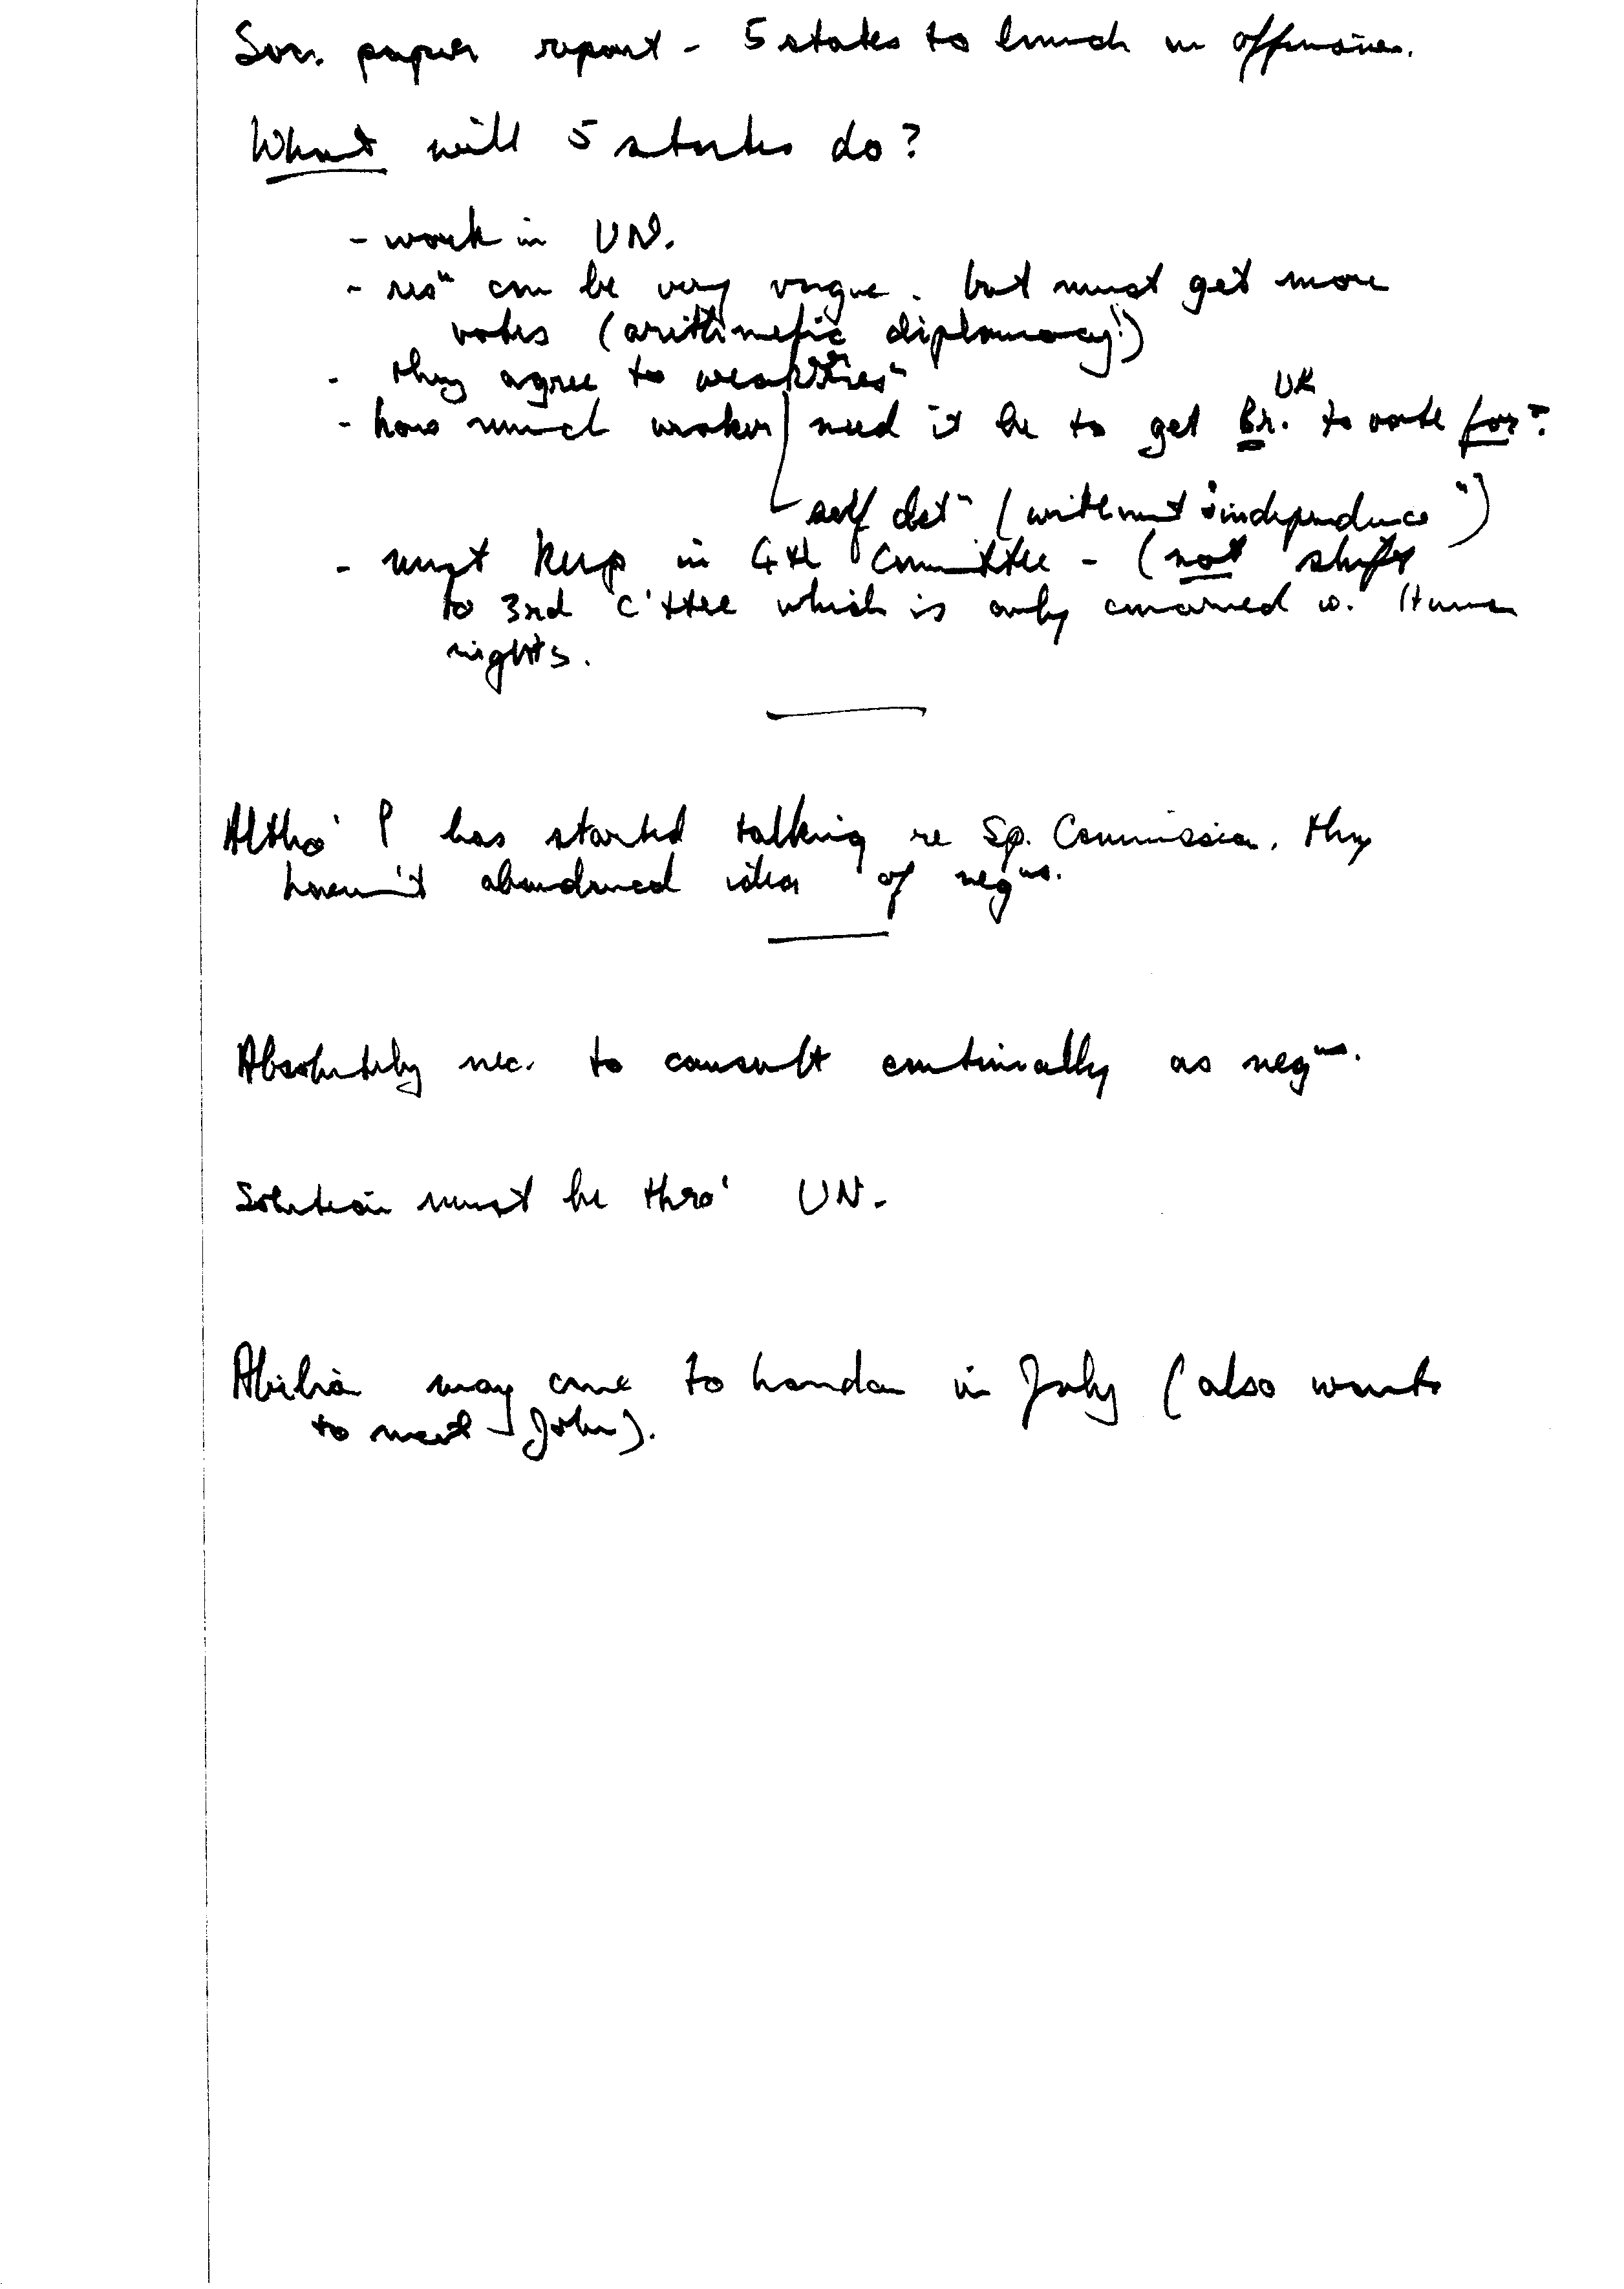 paper report - 5 states to launch an offensive.
What will 5 states do?
- work in UN.
- resⁿ can be very vague. but must get more
votes (arithmetic diplomacy!)
- they agree to weaker resⁿ
- how much weaker need it be to get Br. UK to vote for?
self detⁿ (without "independence")
- must keep in 4th Committee - (not shift
to 3rd C'ttee which is only concerned w. Human
rights.
Altho' P has started talking re Sp. Commission, they
haven't abandoned idea of negⁿˢ.
Absolutely nec. to consult continually as negⁿˢ.
Solution must be thro' UN.
may come to London in July (also wants
to meet John).